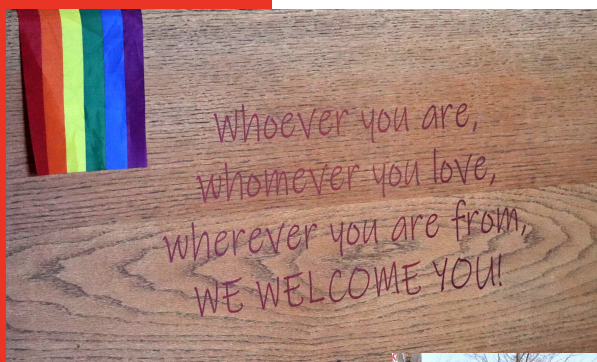 Whoever you are,
whomever you love,
wherever you are from,
WE WELCOME YOU!